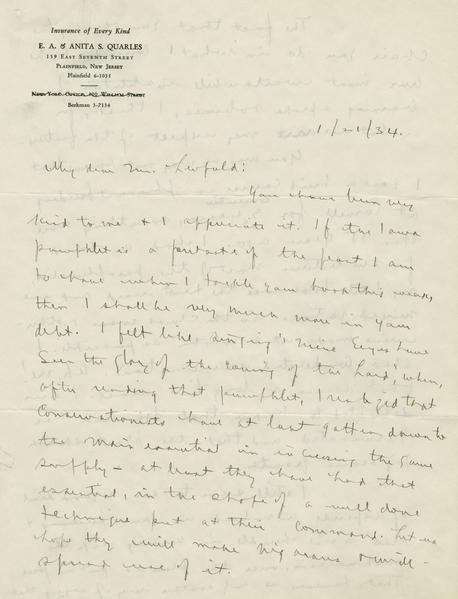 Insurance of Every Kind
E. A. & ANITA S. QUARLES
139 EAST SEVENTH STREET
PLAINFIELD, NEW JERSEY
Plainfield 6-1033
NEW YORK OFFICE, 110 WILLIAM STREET
Beekman 3-7134
1/21/34.
My dear Mr. Leopold:
You have been very
kind to me & I appreciate it. If the Iowa
pamphlet is a foretaste of the feast I am
to have when I tackle your book this week,
then I shall be very much more in your
debt. I felt like singing "Mine Eyes have
Seen the glory of the coming of the Lord" when,
after reading that pamphlet, I realized that
Conservationists have at last gotten down to
the main essential in increasing the game
supply — at least they have had that
essential, in the shape of a well done
technique put at their command. Let us
hope they will make vigorous & wide-
spread use of it.